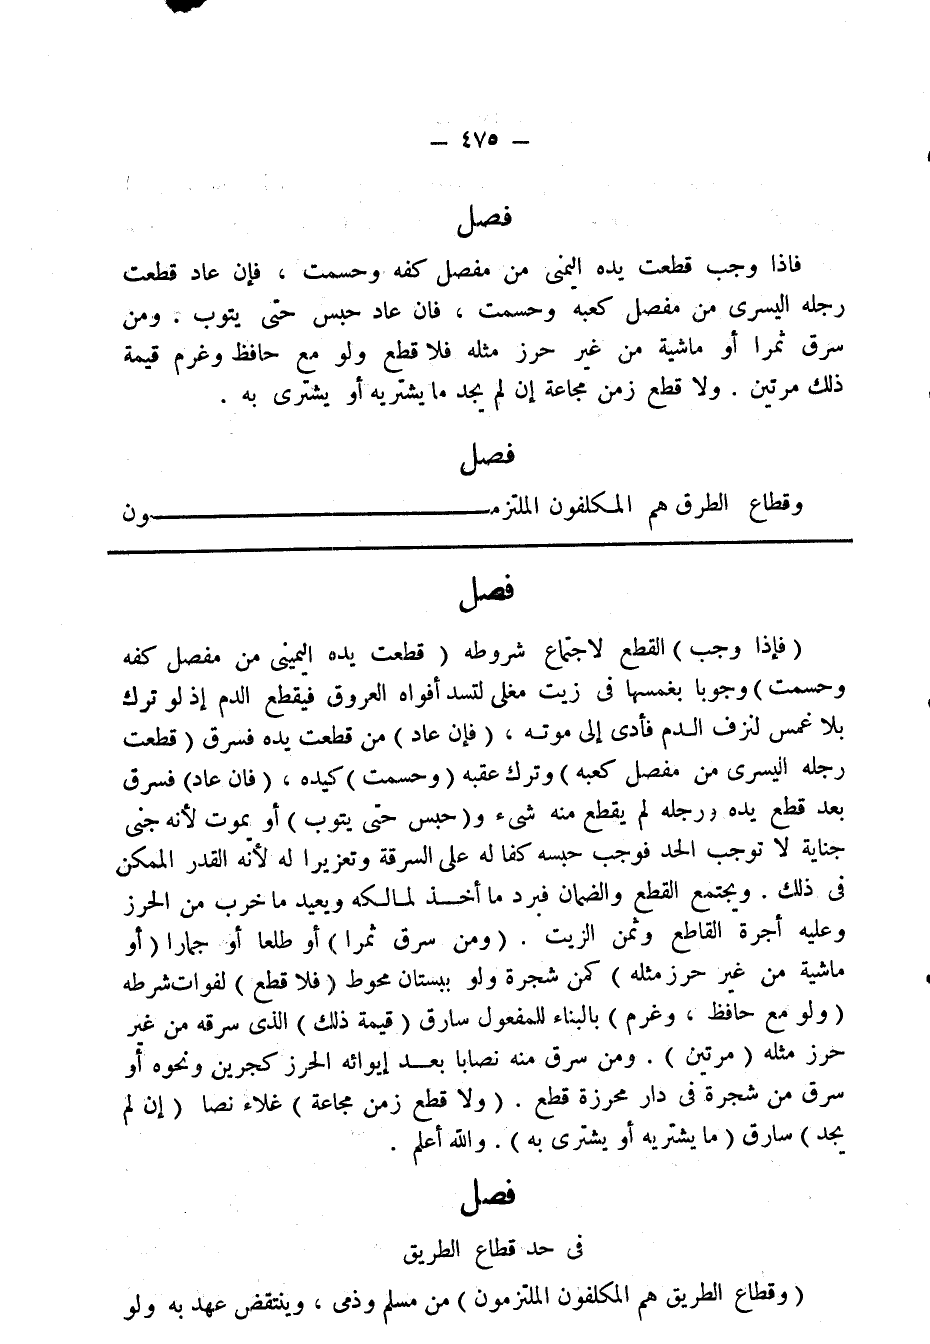 — ٤٧٥ —
فصل
فاذا وجب قطعت يده اليمنى من مفصل كفه وحسمت ، فإن عاد قطعت
رجله اليسرى من مفصل كعبه وحسمت ، فان عاد حبس حتى يتوب . ومن
سرق ثمرا أو ماشية من غير حرز مثله فلا قطع ولو مع حافظ وغرم قيمة
ذلك مرتين . ولا قطع زمن مجاعة إن لم يجد ما يشتريه أو يشترى به .
فصل
وقطاع الطرق هم المكلفون الملتزمـــــــــون
فصل
( فإذا وجب ) القطع لاجتماع شروطه ( قطعت يده اليمينى من مفصل كفه
وحسمت ) وجوبا بغمسها فى زيت مغلى لتسد أفواه العروق فيقطع الدم إذ لو ترك
بلا غمس لنزف الـدم فأدى إلى موتـه ، ( فإن عاد ) من قطعت يده فسرق ( قطعت
رجله اليسرى من مفصل كعبه ) وترك عقبه ( وحسمت ) كيده ، ( فان عاد) فسرق
بعد قطع يده ورجله لم يقطع منه شىء و( حبس حتى يتوب ) أو يموت لأنه جنى
جناية لا توجب الحد فوجب حبسه كفا له على السرقة وتعزيرا له لأنه القدر الممكن
فى ذلك . ويجتمع القطع والضمان فيرد ما أخـــذ لمـالـكه ويعيد ما خرب من الحرز
وعليه أجرة القاطع وثمن الزيت . ( ومن سرق ثمرا ) أو طلعا أو جمارا ( أو
ماشية من غير حرز مثله ) كمن شجرة ولو ببستان محوط ( فلا قطع ) لفوات شرطه
( ولو مع حافظ ، وغرم ) بالبناء للمفعول سارق ( قيمة ذلك ) الذى سرقه من غير
حرز مثله ( مرتين ) . ومن سرق منه نصابا بعـــد إيوائه الحرز كجرين ونحوه أو
سرق من شجرة فى دار محرزة قطع . ( ولا قطع زمن مجاعة ) غلاء نصا ( إن لم
يجد ) سارق ( ما يشتريه أو يشترى به ) . والله أعلم .
فصل
فى حد قطاع الطريق
( وقطاع الطريق هم المكلفون الملتزمون ) من مسلم وذمى ، وينتقض عهد به ولو